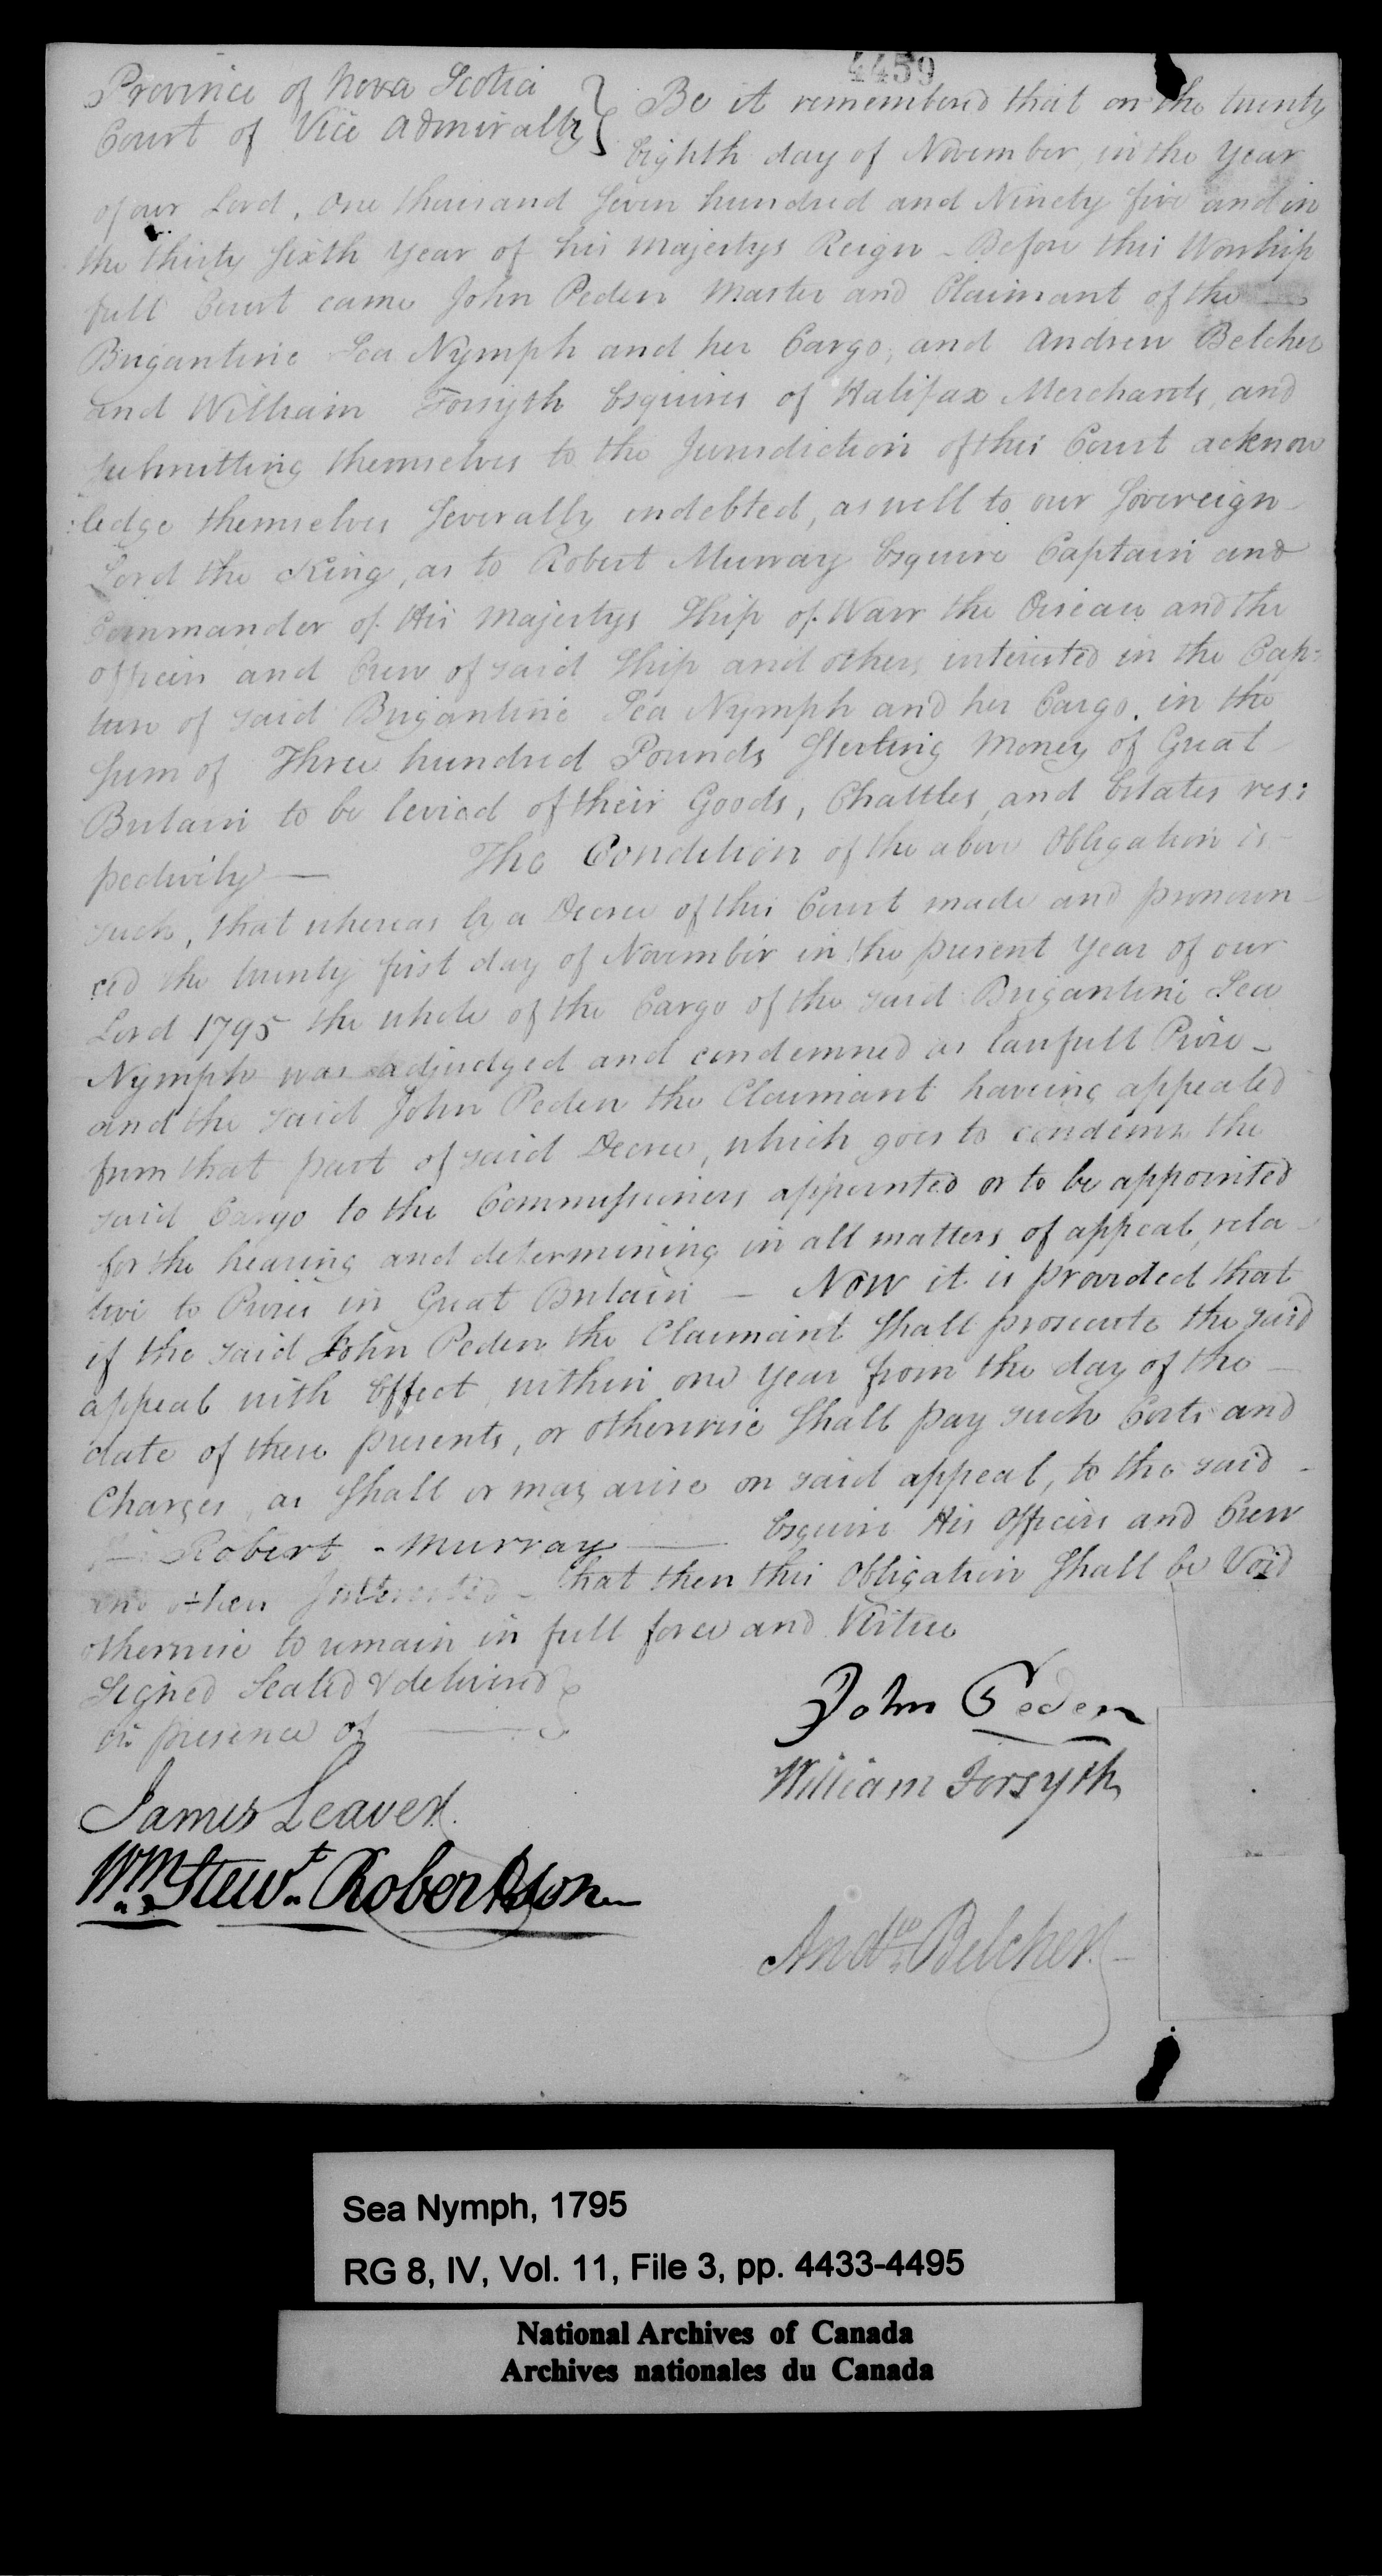 4459
Province of Nova Scotia
Court of Vice Admiralty
Be it remembered that on the twenty
Eighth day of November, in the Year
of our Lord, One thousand Seven hundred and Ninety five and in
the thirty Sixth Year of his Majestys Reign - Before this Worship
full Court came John Peden Master and Claimant of the
Brigantine Sea Nymph and her Cargo, and Andrew Belcher
and William Forsyth Esquires of Halifax Merchants, and
submitting themselves to the Jurisdiction of this Court acknow
:ledge themselves Severally indebted, as well to our Sovereign
Lord the King, as to Robert Murray Esquire Captain and
Commander of His Majestys Ship of Warr the Oiseau and the
officers and Crew of said Ship and others interested in the Cap:
ture of said Brigantine Sea Nymph and her Cargo, in the
Sum of Three hundred Pounds Sterling Money of Great
Britain to be levied of their Goods, Chattles, and Estates res:
pectively — The Condition of the above Obligation is
such, that whereas by a Decree of this Court made and pronoun
ced the twenty first day of November in the present Year of our
Lord 1795 the whole of the Cargo of the said Brigantine Sea
Nymph was adjudged and condemned as lawfull Prize -
and the said John Peden the Claimant haveing appealed
from that part of said Decree, which goes to condemn the
said Cargo to the Commissioners appointed or to be appointed
for the hearing and determining in all matters of appeal, rela
tive to Prizes in Great Britain - Now it is provided that
if the said John Peden the Claimant Shall prosecute the said
appeal with Effect, within one Year from the day of the
date of these presents, or otherwise Shall pay such Costs and
Charges, as Shall or may arise on said appeal, to the said -
Robert - Murray — Esquire His Officers and Crew
and others Interested - that then this Obligation Shall be Void
otherwise to remain in full force and Virtue
Signed Sealed & deliverd
in presence of
John Peden
William Forsyth
James Leaver
Wm. Stewt. Robertson
Andw. Belcher
Sea Nymph, 1795
RG 8, IV, Vol. 11, File 3, pp. 4433-4495
National Archives of Canada
Archives nationales du Canada